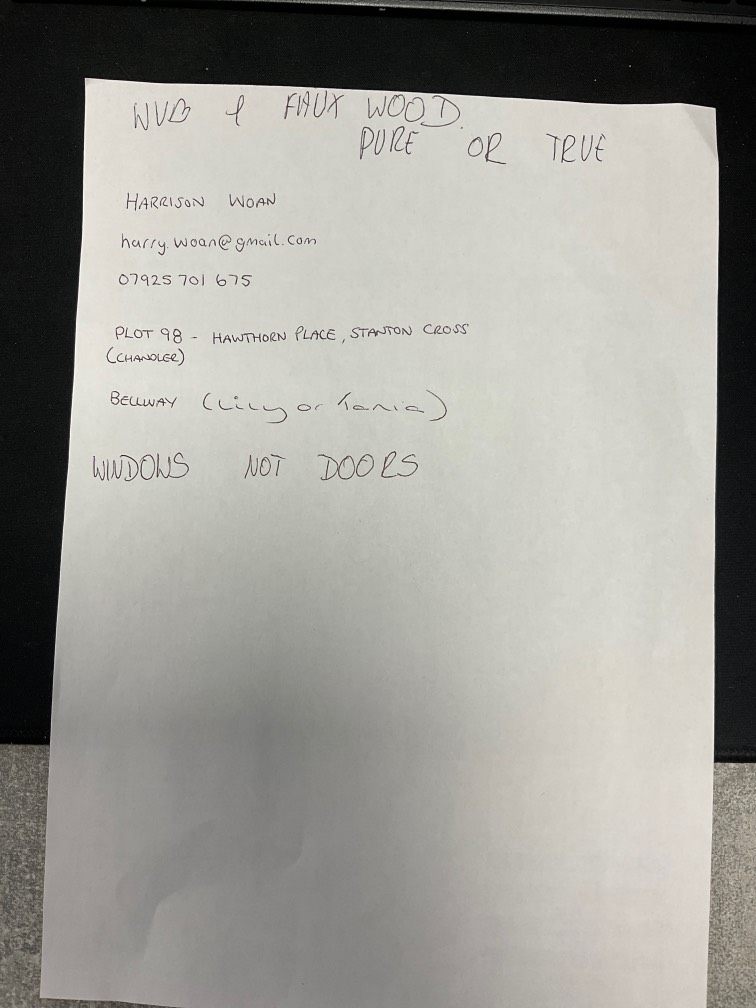 WVB & FAUX WOOD.
PURE OR TRUE
HARRISON WOAN
harry.woan@gmail.com
07925 701 675
PLOT 98 - HAWTHORN PLACE, STANTON CROSS
(CHANDLER)
BELLWAY (Lily or Tania)
WINDOWS NOT DOORS